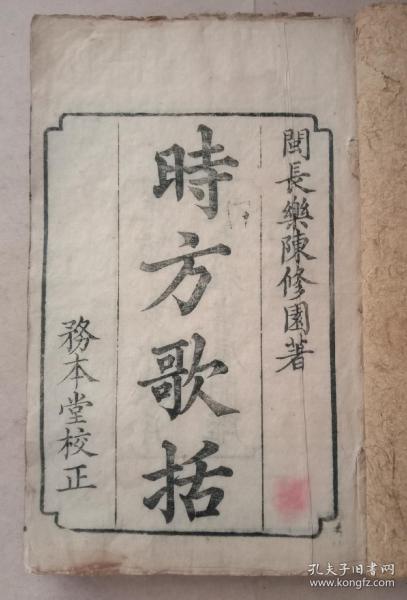 閩長樂陳修園著
時方歌括
務本堂校正
孔夫子旧书网
www.kongfz.com